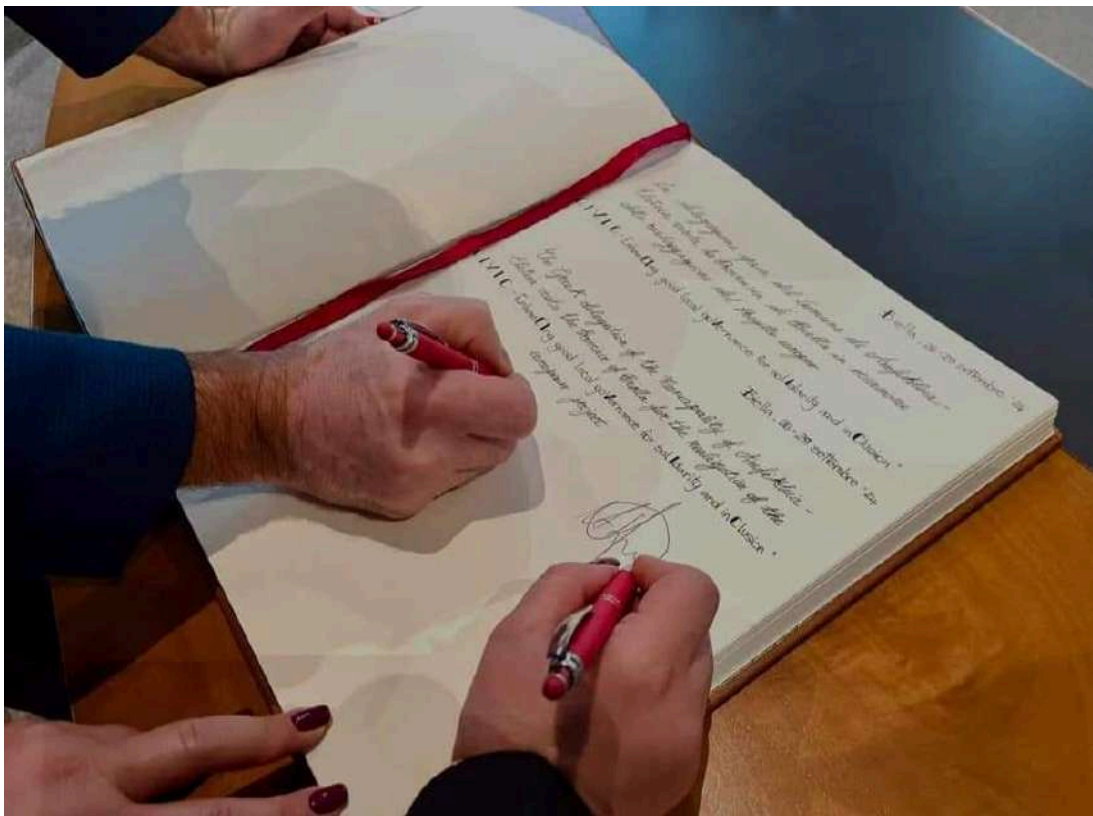 Biella, 26-29 settembre '24
La delegazione greca del Comune di Amfikleia -
Elateia visita la Provincia di Biella in occasione
della realizzazione del progetto europeo
good local governance for solidarity and inClusion"
Biella, 26-29 settembre '24
The Greek delegation of the Municipality of Amfikleia -
Elateia visits the Province of Biella for the realization of the
european project
good local governance for solidarity and inClusion"